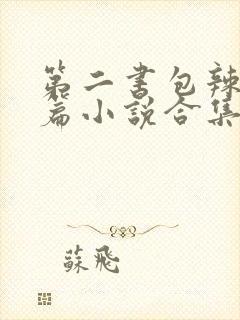 第二书包辣
篇小说合集
蘇飛